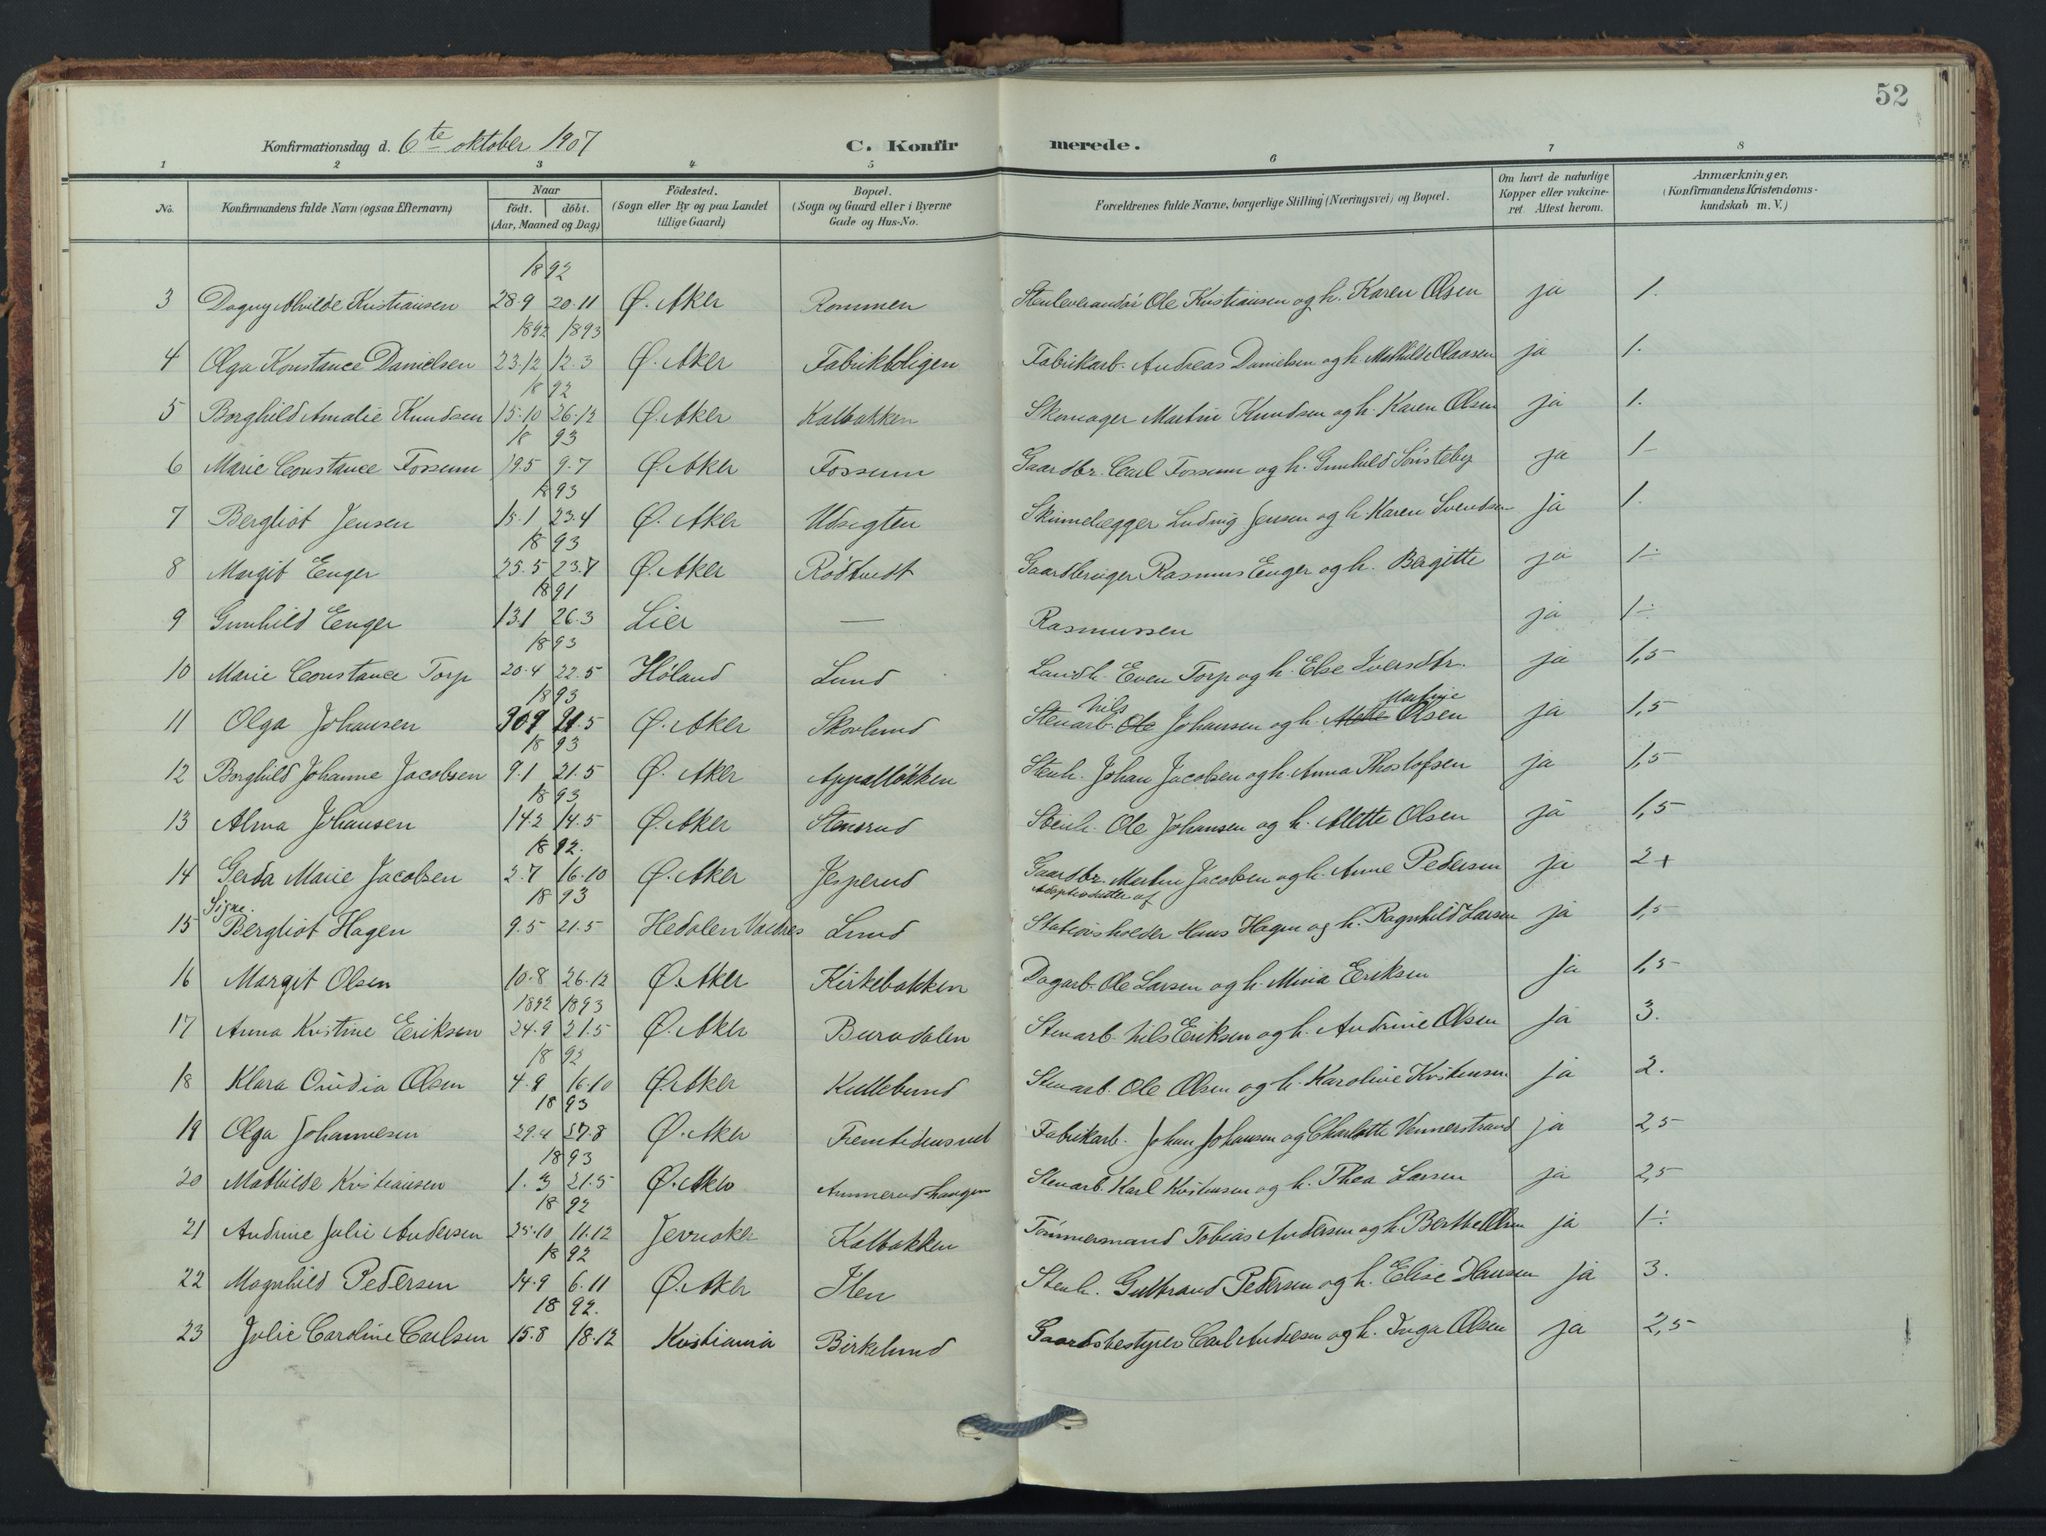 52
Konfirmationsdag d. 6te oktober 1907
C. Konfirmerede.
1 2 3 4 5 6 7 8
No. Konfirmandens fulde Navn (ogsaa Efternavn) Naar født. døbt. (Aar, Maaned og Dag) Fødested. (Sogn eller By og paa Landet tillige Gaard) Bopæl. (Sogn og Gaard eller i Byerne Gade og Hus-No. Forældrenes fulde Navne, borgerlige Stilling (Næringsvei) og Bopæl. Om havt de naturlige Kopper eller vakcineret. Attest herom. Anmærkninger. (Konfirmandens Kristendomskundskab m. V.)
1892
3 Dagny Alvilde Kristiansen 28.9 20.11 Ø. Aker Rommen Stenleverandør Ole Kristiansen og h. Karen Olsen ja 1.
1892 1893
4 Olga Konstance Danielsen 23.12 12.3 Ø. Aker Fabrikboligen Fabrikarb. Andreas Danielsen og h. Mathilde Olausen ja 1.
1892
5 Borghild Amalie Knudsen 15.10 26.12 Ø. Aker Kalbakken Skomager Martin Knudsen og h. Karen Olsen ja 1.
1893
6 Marie Constance Fossum 19.5 9.7 Ø. Aker Fossum Gaardbr. Carl Fossum og h. Gunhild Sønsteby ja 1-
1893
7 Bergliot Jensen 15.1 23.4 Ø. Aker Udsigten Skinnelægger Ludvig Jensen og h. Karen Svendsen ja 1.
1893
8 Margit Enger 25.5 23.7 Ø. Aker Rødtvedt Gaardbruger Rasmus Enger og h. Bergitte ja 1÷
1891
9 Gunhild Enger 13.1 26.3 Lier — Rasmussen ja 1÷
1893
10 Marie Constance Torp 20.4 22.5 Høland Lund Landh. Even Torp og h. Else Iversdtr. ja 1,5
1893 Nils Martine
11 Olga Johansen 21.5 Ø. Aker Skovlund Stenarb. Ole Johansen og h. Mette Olsen ja 1,5
1893
12 Borghild Johanne Jacobsen 9.1 21.5 Ø. Aker Appalløkken Stenh. Johan Jacobsen og h. Anna Thostofsen ja 1,5
1893
13 Alma Johansen 14.2 14.5 Ø. Aker Stensrud Stenh. Ole Johansen og h. Alette Olsen ja 1,5
1892.
14 Gerda Marie Jacobsen 2.7 16.10 Ø. Aker Jesperud Gaardbr. Martin Jacobsen og h. Anne Pedersen ja 2+
Signe. 1893 Adoptivdatter af
15 Bergliot Hagen 9.5 21.5 Hedalen Valdres Lund Stationsholder Hans Hagen og h. Ragnhild Larsen ja 1,5
16 Margit Olsen 10.8 26.12 Ø. Aker Kirkebakken Dagarb. Ole Larsen og h. Mina Eriksen ja 1,5
1892 1893
17 Anna Kristine Eriksen 24.9 21.5 Ø. Aker Buradalen Stenarb. Nils Eriksen og h. Andrine Olsen ja 3.
1892
18 Klara Ovidia Olsen 4.9 16.10 Ø. Aker Kullebund Stenarb. Ole Olsen og h. Karoline Kristensen ja 2.
1893
19 Olga Johannesen 29.4 27.8 Ø. Aker Fremtidensvei Fabrikarb. Johan Johansen og Charlotte Vennerstrand ja 2,5
1893
20 Mathilde Kristiansen 1.3 21.5 Ø. Aker Ammerudhaugen Stenarb. Karl Kristensen og h. Thea Larsen ja 2,5
1892
21 Andrine Julie Andersen 25.10 11.12 Jevnaker Kalbakken Tømmermand Tobias Andersen og h. Berthe Olsen ja 1÷
1892
22 Magnhild Pedersen 14.9 6.11 Ø. Aker Ilen Stenh. Gulbrand Pedersen og h. Elise Hansen ja 3.
1892.
23 Julie Caroline Carlsen 15.8 18.12 Kristiania Birkelund Gaardsbestyrer Carl Andresen og h. Inga Olsen ja 2,5